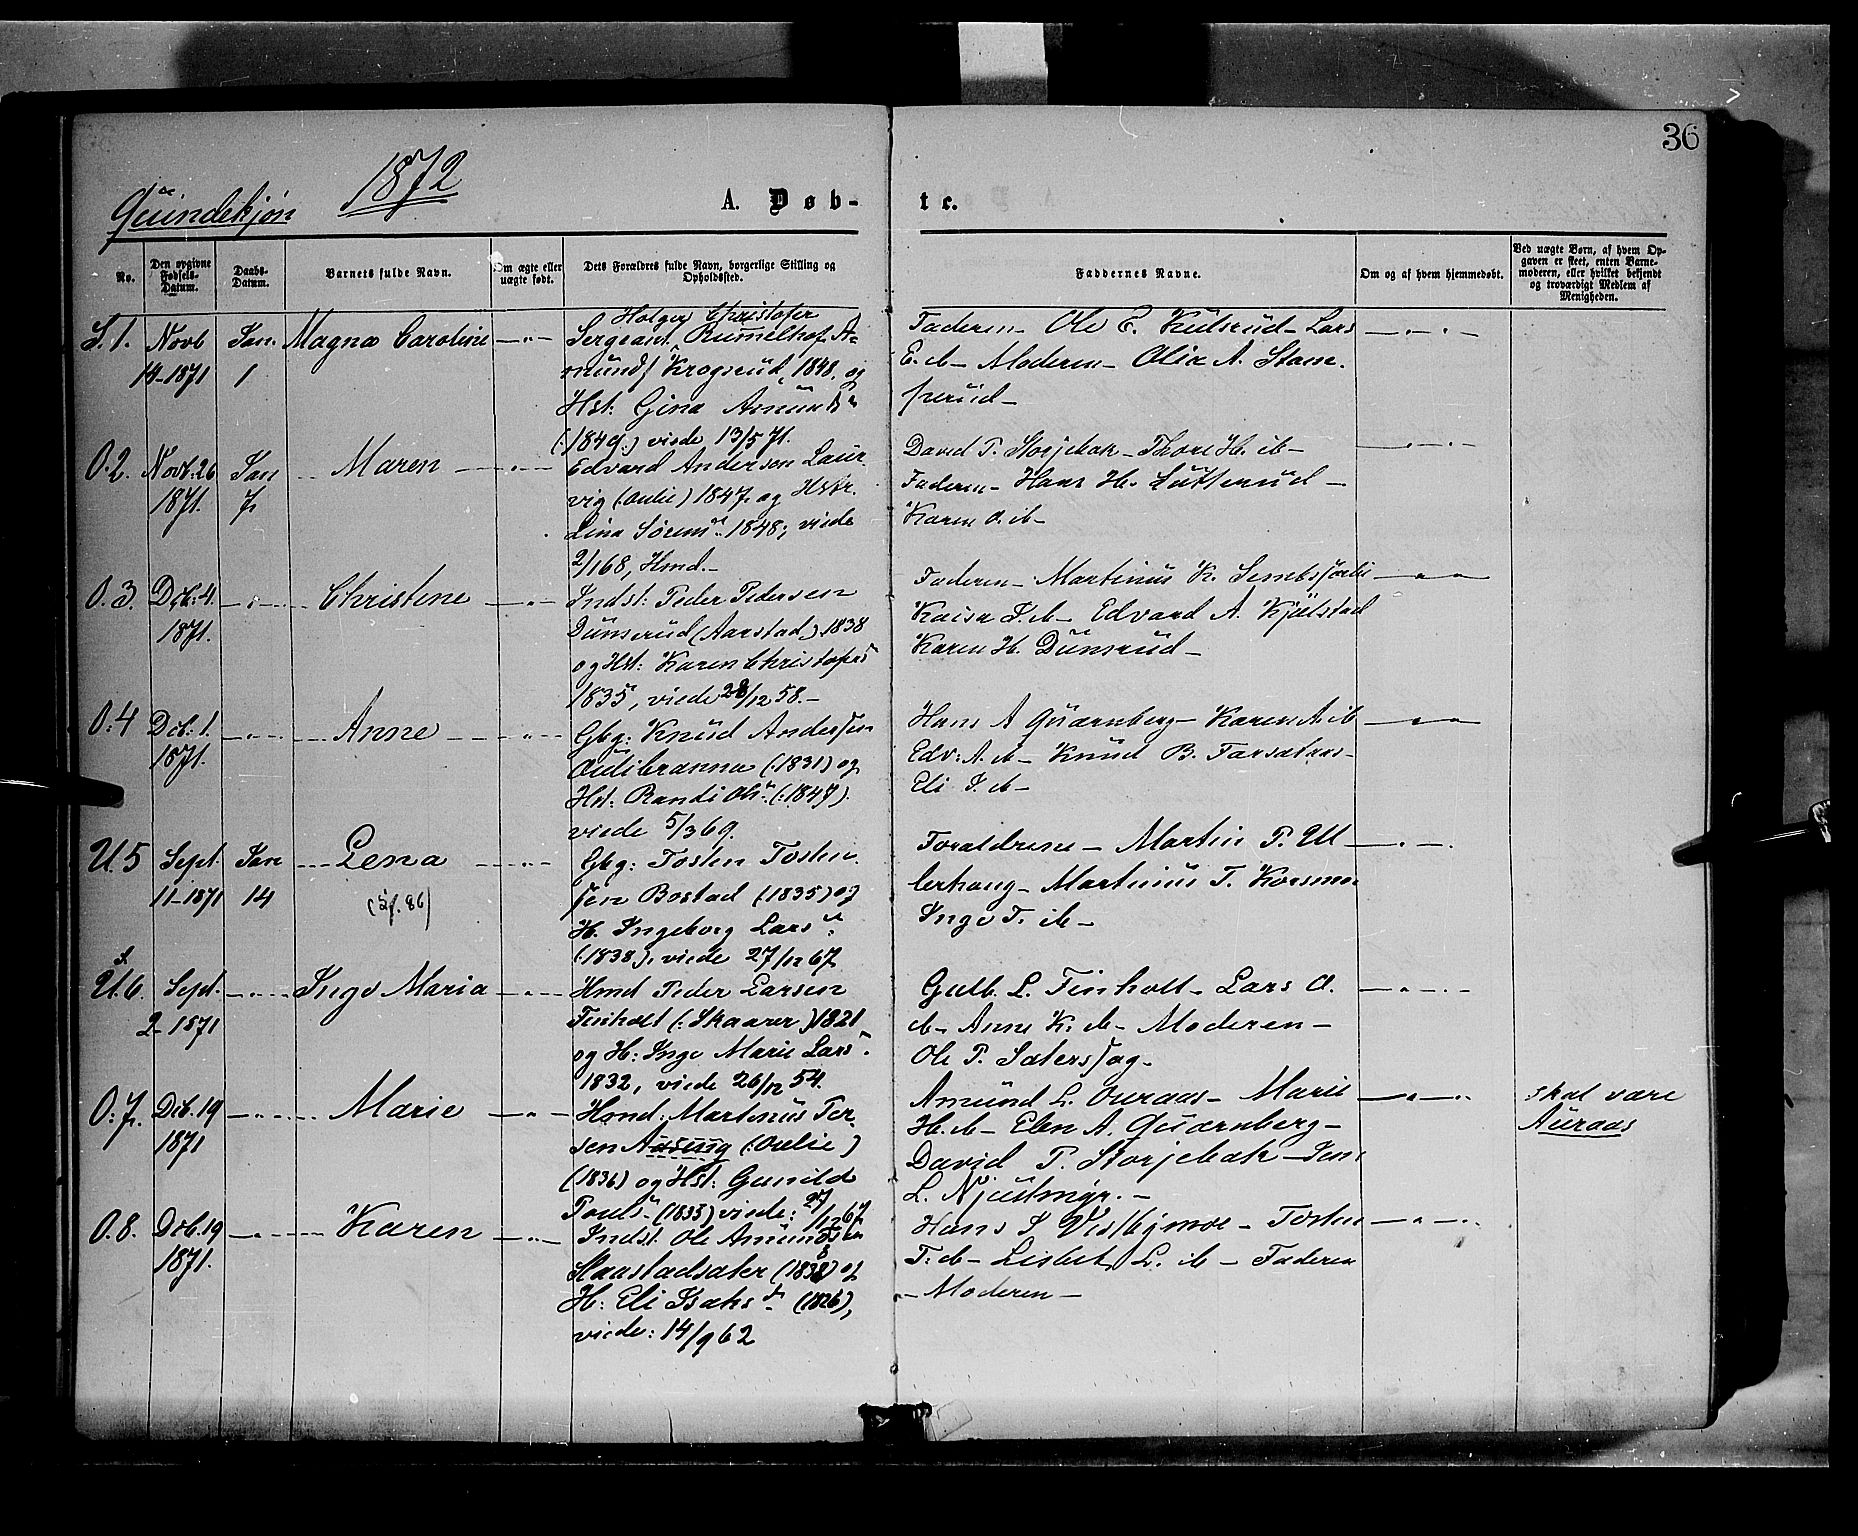 36
1872
Qvindekjøn
A. Døb-
te.
No.
Den opgivne Fødsels-Datum.
Daabs-Datum.
Barnets fulde Navn.
Om ægte eller uægte født.
Dets Forældres fulde Navn, borgerlige Stilling og Opholdssted.
Faddernes Navne.
Om og af hvem hjemmedøbt.
Ved uægte Børn, af hvem Opgaven er skeet, enten Barnemoderen, eller hvilket bekjendt og troværdigt Medlem af Menigheden.
S. 1. Novb 14-1871 Jan. 1 Magna Caroline
Holger Christofer
Sergeant Rumelhof A-
munds Krogsrud, 1848, og
Hst: Gina Amunds
(:1849:) viede 13/5 71.
Faderen - Ole E. Kulsrud - Lars
E. ib - Moderen - Olia A. Stam-
psrud -
O. 2. Novb. 26 1871. Jan 7. Maren
Edvard Andersen Laur-
vig (Oulie) 1847, og Hstr.
Lina Sørensd. 1848; viede
2/1 68, Hmd. -
David P. Storjebak - Thore H. ib -
Faderen - Hans H. Lutterud -
Karen O. ib -
O. 3. Dcb: 4. 1871. Christine
Indst: Peder Pedersen
Dunserud (Aarstad) 1838
og Hst: Karen Christofers
1835, viede 28/12 58. -
Faderen - Martinius K.
Kaisa P. ib - Edvard A. Kjølstad
Karen H. Dunsrud -
O: 4 Dcb: 1. 1871. Anne
Gbg: Knud Andersen
Oudibranna (:1831) og
Hst: Randi Olsd. (:1847)
viede 5/3 69.
Hans A Quærnberg - Karen A. ib
Edv: A. ib - Knud B.
Eli P. ib -
U. 5 Sept. 11-1871 Jan 14 Lena
(jf. 86)
Gbg: Tosten Tosten-
sen Bostad (1835) og
H. Ingeborg Larsd.
(:1838), viede 27/12 67
Forældrene - Martin P. Ul
lerhaug - Martinius T. Korsmo
Inge T. ib -
U. 6. Sept. 2-1871 Inge Maria
Hmd Peder Larsen
Finholt (: Skaarer) 1821
og H: Inge Marie Lars
1832, viede 26/12 54.
Gulb. L. Finholt - Lars O.
ib - Anne K. ib - Moderen -
Ole P. Sætersag.
O. 7. Dcb. 19 1871 Marie
Hmd: Martinus Tor-
sen Auraug (: Oulie)
(1836) og Hst: Gunild
Pouls (1835) viede: 27/12 67
Amund L. Ouraas - Marie
H. ib - Elen A. Quærnberg -
David P. Storjebak - Jens
L. Njustmyr. -
skal være
Auraas
O. 8. Dcb. 19 1871. Karen
Indst. Ole Amundsen
Haastadsæter (1838) og
H: Eli Isaksd. (1826),
viede: 14/9 62
Hans S Vestbymoe - Tosten
T. ib - Lisbet L. ib - Faderen
- Moderen -